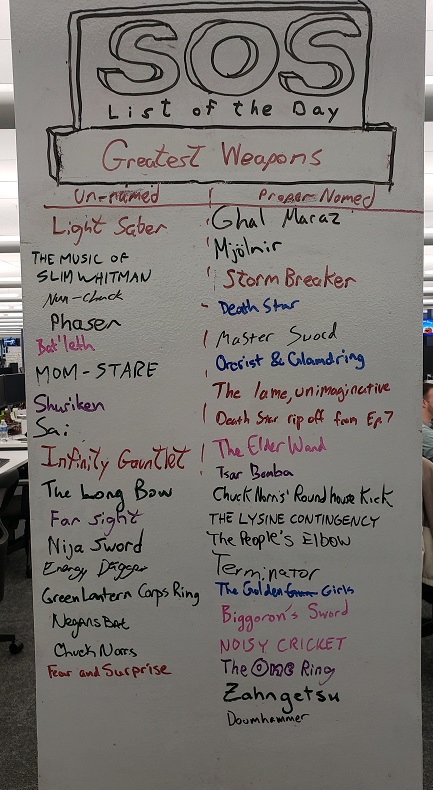 SOS
List of the Day
Greatest Weapons
Un-named
Light Saber
THE MUSIC OF
SLIM WHITMAN
Nun-chuck
Phaser
Bat'leth
MOM-STARE
Shuriken
Sai
Infinity Gauntlet
The Long Bow
Far sight
Nija Sword
Energy Dagger
Green Lantern Corps Ring
Negans Bat
Chuck Norrs
Fear and Surprise
Proper Nomed
Ghal Maraz
Mjölnir
Storm Breaker
Death Star
Master Sword
Orcrist & Glamdring
The lame, unimaginative
Death Star rip off from Ep. 7
The Elder Wand
Tsar Bomba
Chuck Norris' Roundhouse Kick
THE LYSINE CONTINGENCY
The People's Elbow
Terminator
The Golden Girls
Biggoron's Sword
NOISY CRICKET
The One Ring
Zahngetsu
Doumhammer